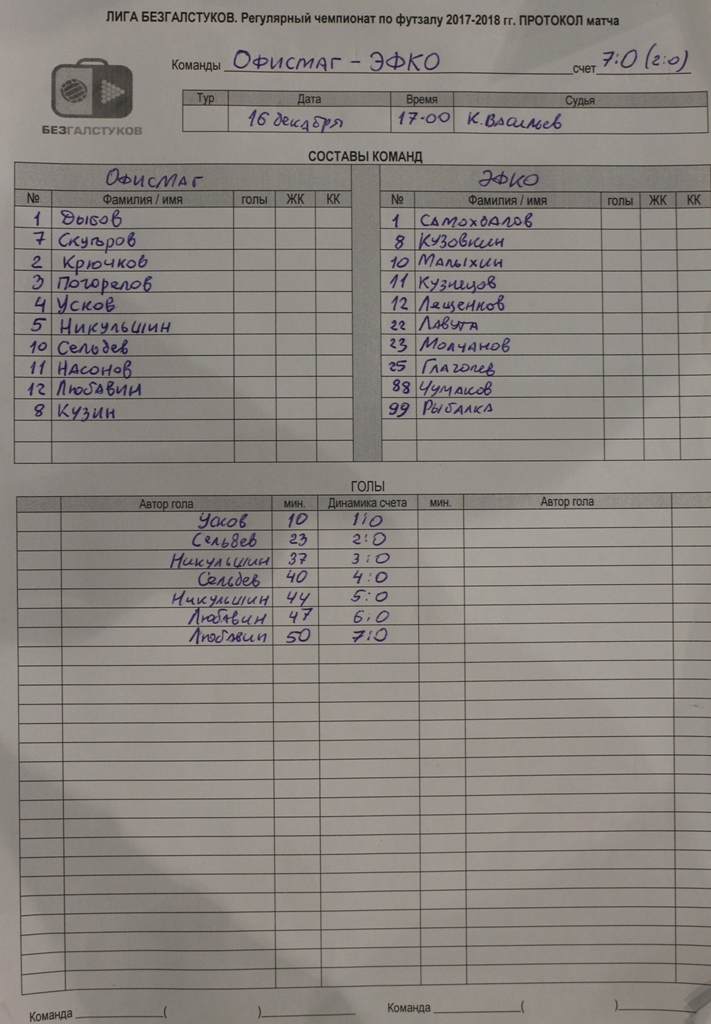 ЛИГА БЕЗГАЛСТУКОВ. Регулярный чемпионат по футзалу 2017-2018 гг. ПРОТОКОЛ матча
Команды ОФИСМАГ - ЭФКО счет 7:0 (2:0)
БЕЗГАЛСТУКОВ
Тур Дата Время Судья
16 декабря 17-00 К. Васильев
СОСТАВЫ КОМАНД
ОФИСМАГ ЭФКО
№ Фамилия / имя голы ЖК КК № Фамилия / имя голы ЖК КК
1 Дыбов 1 Самохвалов
7 Скугоров 8 Кузовкин
2 Крючков 10 Малыхин
3 Погорелов 11 Кузнецов
4 Усков 12 Лещенков
5 Никульшин 22 Лавута
10 Сельдев 23 Молчанов
11 Насонов 25 Глаголев
12 Любавин 88 Чумаков
8 Кузин 99 Рыбалка
ГОЛЫ
Автор гола мин. Динамика счета мин. Автор гола
Усков 10 1:0
Сельдев 23 2:0
Никульшин 37 3:0
Сельдев 40 4:0
Никульшин 44 5:0
Любавин 47 6:0
Любавин 50 7:0
Команда ( ) Команда ( )